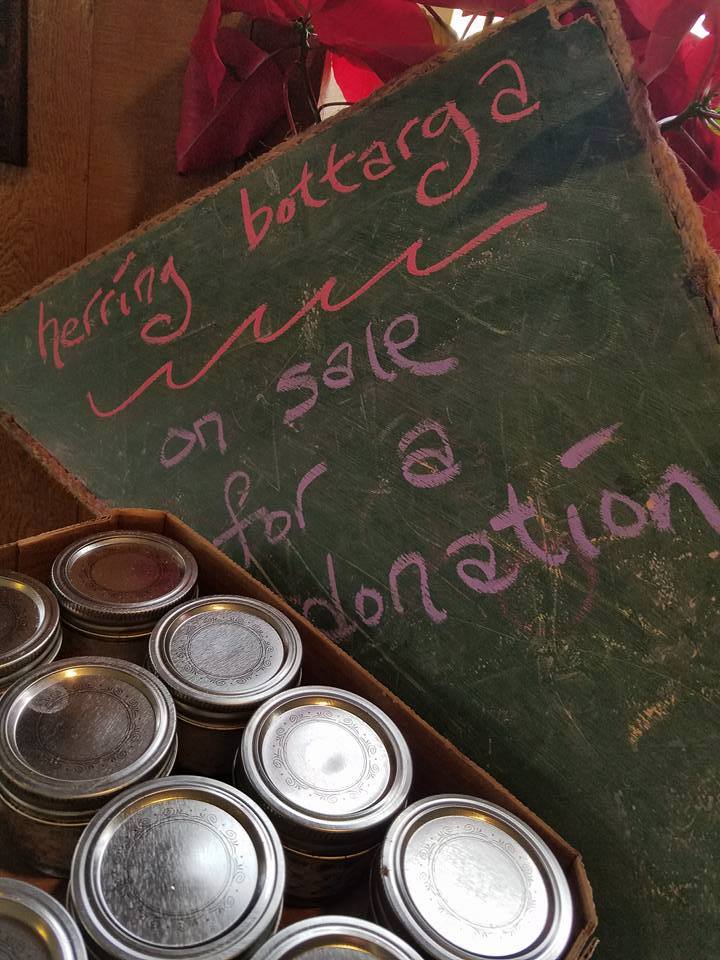 herring bottarga
on sale
for a
donation